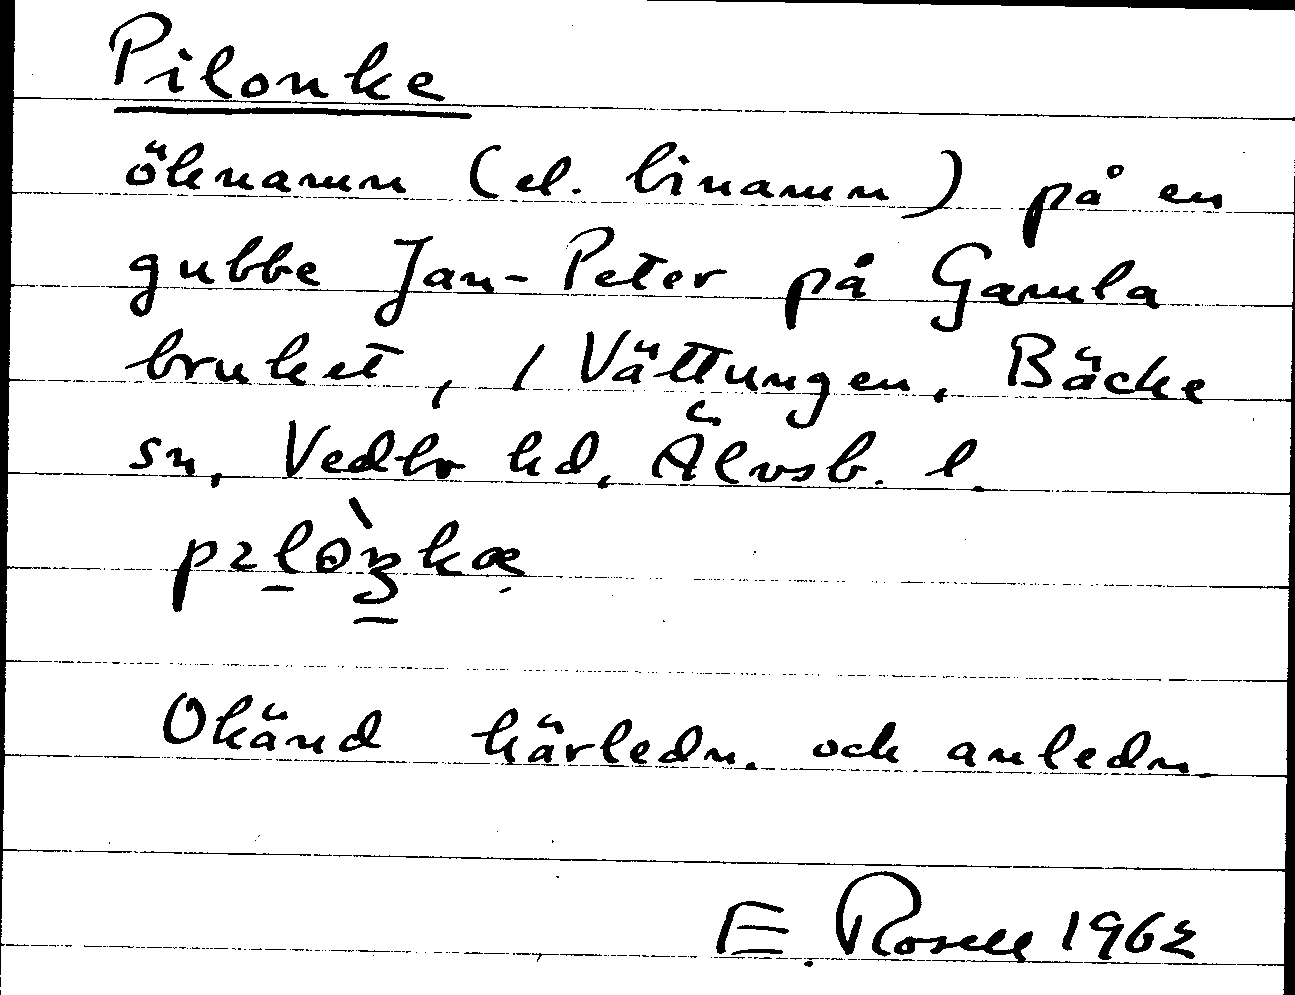 Pilonke
öknamn (el. binamn) på en
gubbe Jan-Peter på Gamla
bruket, / Vättungen, Bäcke
sn, Vedbo hd, Älvsb. l.
Okänd härledn. och anledn.
E. Rosell 1962